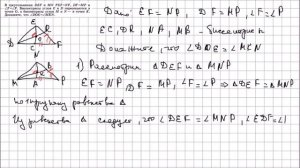 В треугольниках DEF и MNP EF=NP, DF=MP и ∠F=∠P. Биссектрисы углов E и D пересекаются в точке O, а биссектрисы углов M и N — в точке K. Докажите, что ∠DOE=∠MKN.
Дано: EF = NP, DF = MP, ∠F = ∠P
EC, DR, NA, MB - биссектрисы
Доказать, что ∠DOE = ∠MKN
1) Рассмотрим ΔDEF и ΔMNP
EF = NP, DF = MP, ∠F = ∠P ⇒ ΔDEF = ΔMNP
по первому равенства Δ
Из равенства Δ следует, что ∠DEF = ∠MNP, ∠EDF = ∠
E
D
F
R
N
M
P